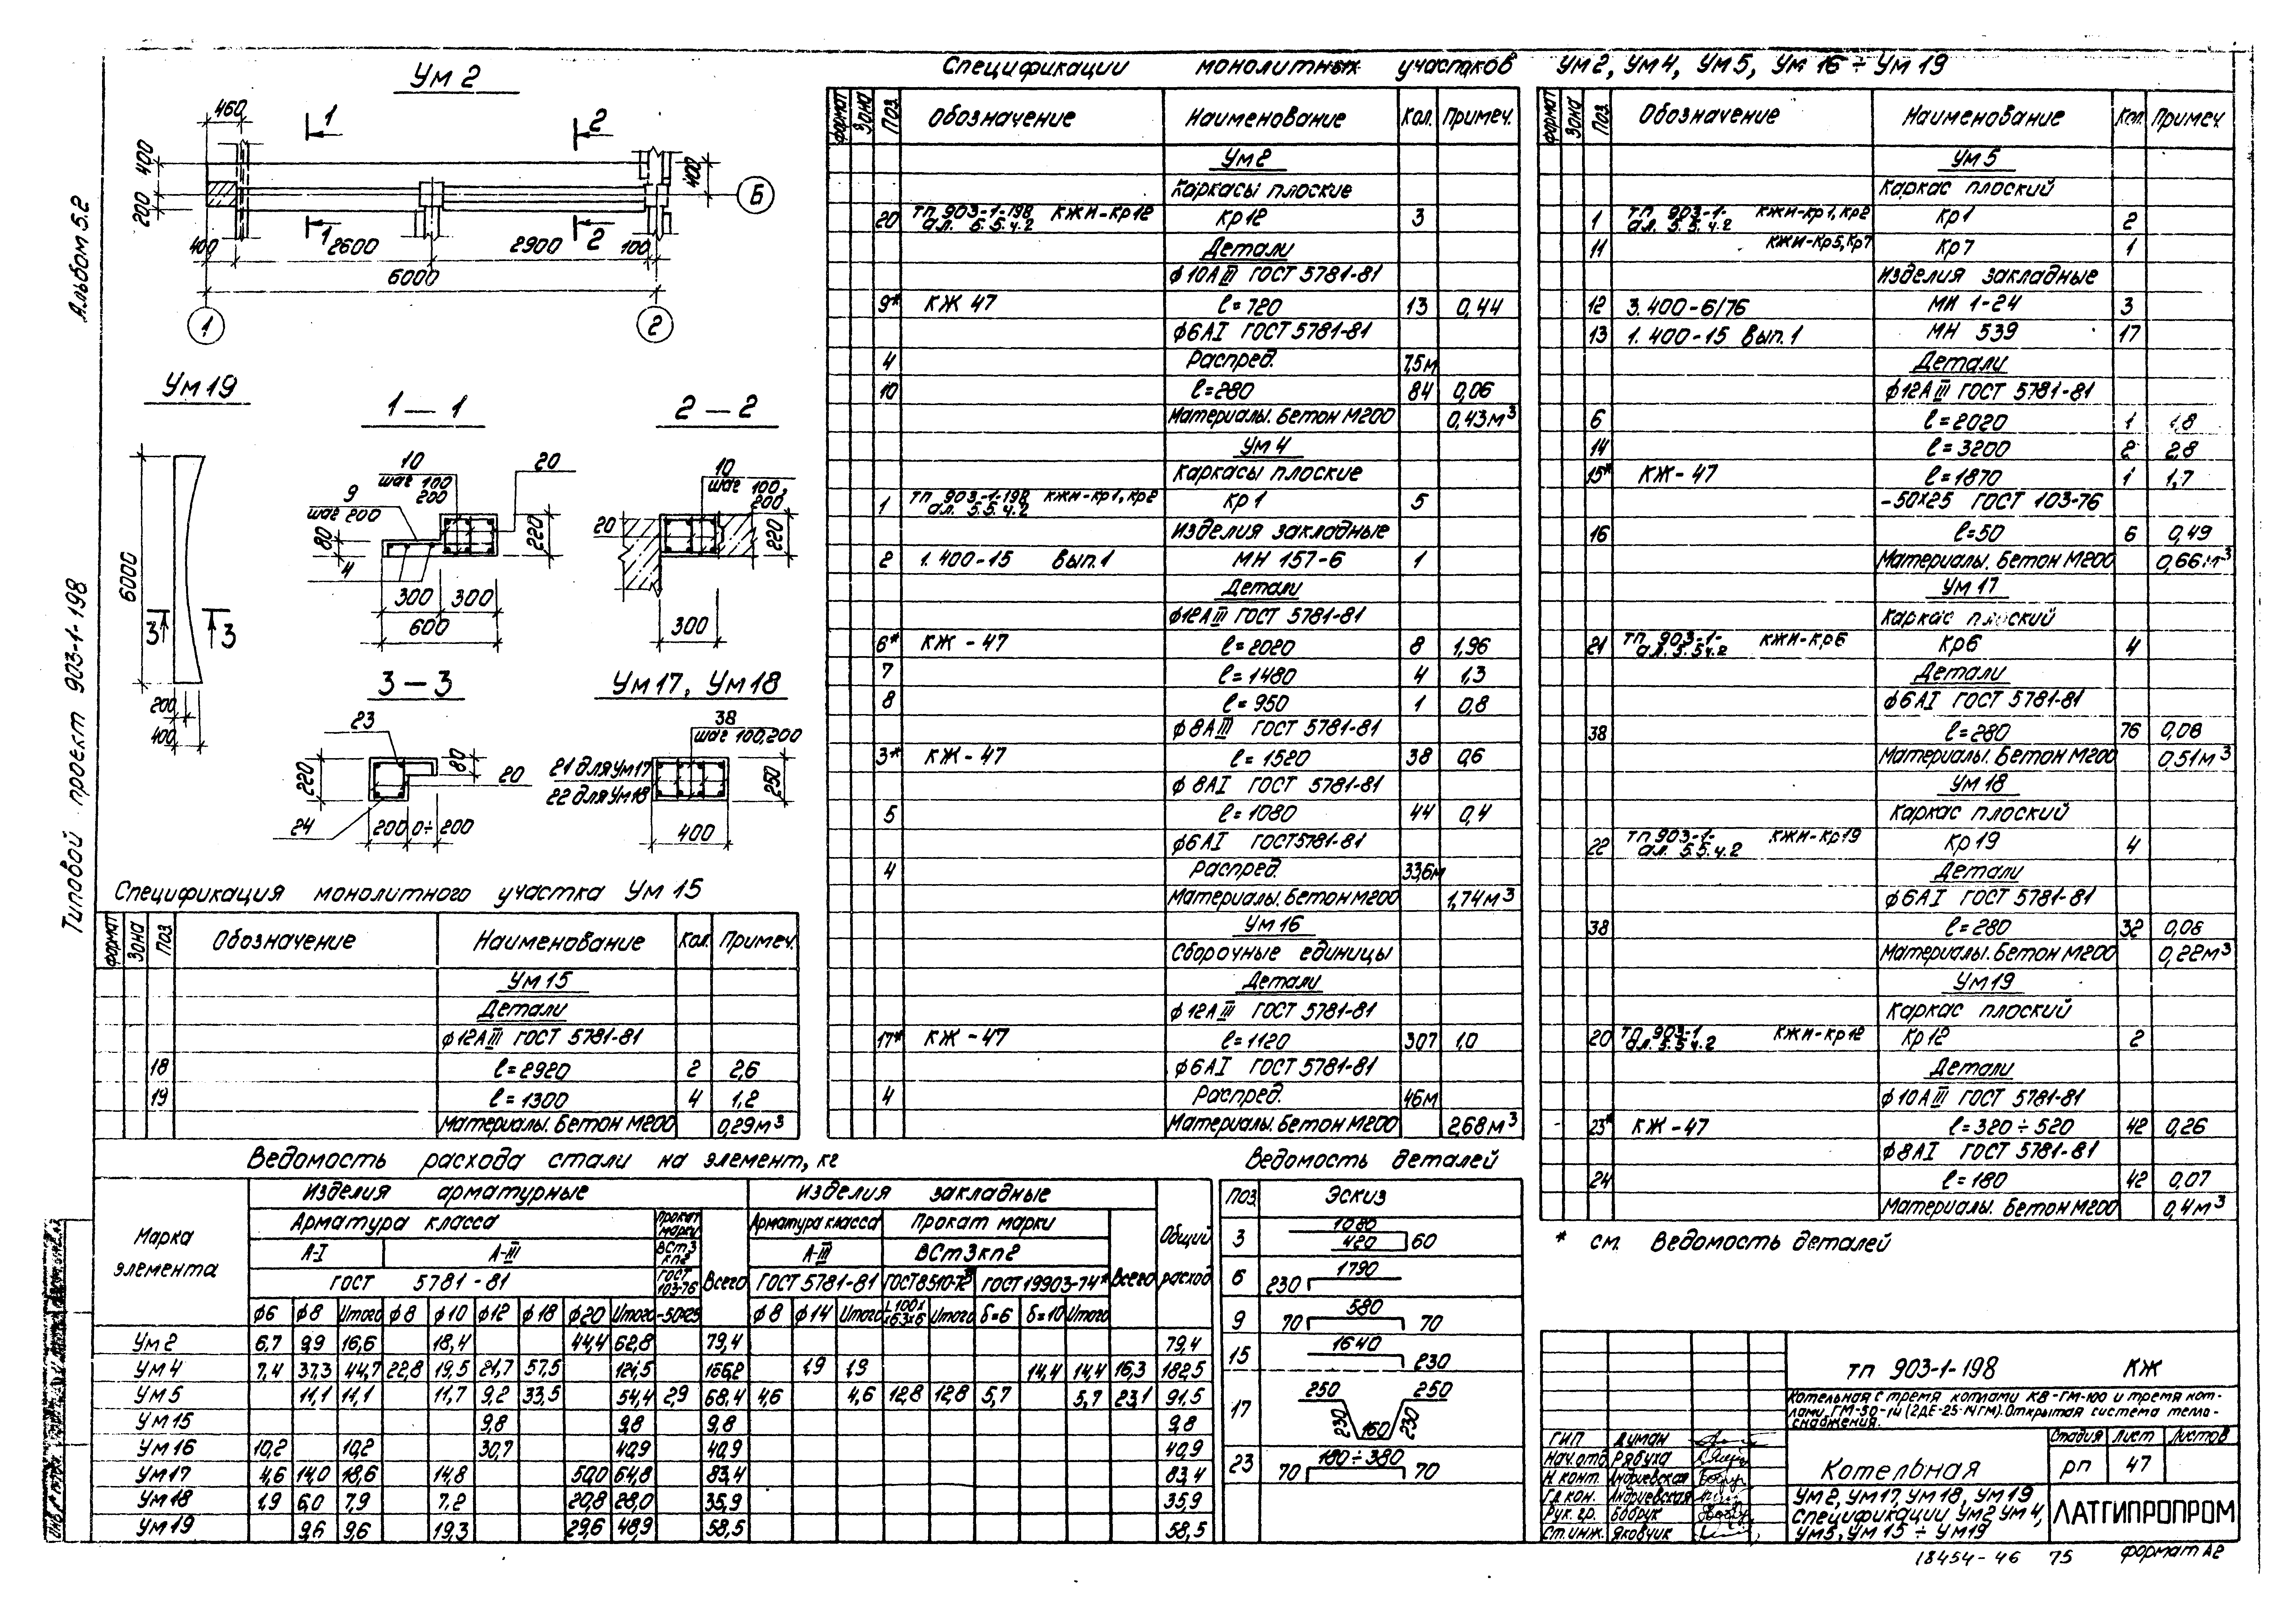 Альбом 5.2
Типовой проект 903-1-198
Ум 2
460
1
2
400
200
400
Б
400
1
2600
2900
2
100
6000
1
2
Ум 19
6000
3
3
200
400
1 — 1
10
шаг 100
200
20
9
шаг 200
80
4
220
300
300
600
2 — 2
10
шаг 100,
200
20
220
300
3 — 3
23
80
220
20
24
200
0÷200
Ум 17, Ум 18
38
шаг 100,200
21 для Ум17
22 для Ум18
250
400
Спецификация монолитного участка Ум 15
Формат Зона Поз. Обозначение Наименование Кол. Примеч.
Ум 15
Детали
ф12АIII ГОСТ 5781-81
18 ℓ=2920 2 2,6
19 ℓ=1300 4 1,2
Материалы. Бетон М200 0,29м³
Спецификации монолитных участков Ум2, Ум4, Ум5, Ум 16÷Ум 19
Формат Зона Поз. Обозначение Наименование Кол. Примеч.
Ум2
Каркасы плоские
20 ТП 903-1-198 КЖИ-Кр12 Кр12 3
ал. 5.5.ч.2
Детали
ф10АIII ГОСТ 5781-81
9* КЖ 47 ℓ=720 13 0,44
ф6АI ГОСТ 5781-81
4 Распред. 7,5м
10 ℓ=280 84 0,06
Материалы. Бетон М200 0,43м³
Ум 4
Каркасы плоские
1 ТП 903-1-198 КЖИ-Кр1,Кр2 Кр1 5
ал. 5.5.ч.2
Изделия закладные
2 1.400-15 Вып.1 МН 157-6 1
Детали
ф12АIII ГОСТ 5781-81
6* КЖ-47 ℓ=2020 8 1,96
7 ℓ=1480 4 1,3
8 ℓ=950 1 0,8
ф8АIII ГОСТ 5781-81
3* КЖ-47 ℓ=1520 38 0,6
ф8АI ГОСТ 5781-81
5 ℓ=1080 44 0,4
ф6АI ГОСТ5781-81
4 Распред. 33,6м
Материалы. Бетон М200 1,74м³
Ум 16
Сборочные единицы
Детали
ф12АIII ГОСТ 5781-81
17* КЖ-47 ℓ=1120 307 1,0
ф6АI ГОСТ 5781-81
4 Распред. 46м
Материалы. Бетон М200 2,68м³
Формат Зона Поз. Обозначение Наименование Кол. Примеч.
Ум 5
Каркас плоский
1 ТП 903-1- КЖИ-Кр1,Кр2 Кр1 2
ал. 5.5.ч.2
11 КЖИ-Кр5,Кр7 Кр7 1
Изделия закладные
12 3.400-6/76 МИ 1-24 3
13 1.400-15 Вып.1 МН 539 17
Детали
ф12АIII ГОСТ 5781-81
6 ℓ=2020 1 1,8
14 ℓ=3200 2 2,8
15* КЖ-47 ℓ=1870 1 1,7
-50х25 ГОСТ 103-76
16 ℓ=50 6 0,49
Материалы. Бетон М200 0,66м³
Ум 17
Каркас плоский
21 ТП 903-1- КЖИ-Кр6 Кр6 4
ал. 5.5ч.2
Детали
ф6АI ГОСТ 5781-81
38 ℓ=280 76 0,08
Материалы. Бетон М200 0,51м³
Ум 18
Каркас плоский
22 ТП 903-1- КЖИ-Кр19 Кр19 4
ал. 5.5.ч.2
Детали
ф6АI ГОСТ 5781-81
38 ℓ=280 32 0,08
Материалы. Бетон М200 0,22м³
Ум19
Каркас плоский
20 ТП 903-1 КЖИ-Кр12 Кр12 2
ал. 5.5ч.2
Детали
ф10АIII ГОСТ 5781-81
23* КЖ-47 ℓ=320÷520 42 0,26
ф8АI ГОСТ 5781-81
24 ℓ=180 42 0,07
Материалы. Бетон М200 0,4м³
* см. Ведомость деталей
Ведомость расхода стали на элемент, кг
Марка элемента Изделия арматурные Изделия закладные Общий расход
Арматура класса Прокат марки Всего Арматура класса Прокат марки Всего
А-I А-III ВСт3кп2 А-III ВСт3кп2
ГОСТ 5781-81 ГОСТ 103-76 ГОСТ 5781-81 ГОСТ8510-72 ГОСТ 19903-74*
ф6 ф8 Итого ф8 ф10 ф12 ф18 ф20 Итого -50х25 ф8 ф14 Итого L100х63х6 Итого δ=6 δ=10 Итого
Ум 2 6,7 9,9 16,6 18,4 44,4 62,8 79,4 79,4
Ум 4 7,4 37,3 44,7 22,8 19,5 21,7 57,5 121,5 166,2 1,9 1,9 14,4 14,4 16,3 182,5
Ум 5 11,1 11,1 11,7 9,2 33,5 54,4 2,9 68,4 4,6 4,6 12,8 12,8 5,7 5,7 23,1 91,5
Ум 15 9,8 9,8 9,8 9,8
Ум 16 10,2 10,2 30,7 40,9 40,9 40,9
Ум17 4,6 14,0 18,6 14,8 50,0 64,8 83,4 83,4
Ум 18 1,9 6,0 7,9 7,2 20,8 28,0 35,9 35,9
Ум 19 9,6 9,6 19,3 29,6 48,9 58,5 58,5
Ведомость деталей
Поз. Эскиз
3 1080 420 60
6 230 1790
9 70 580 70
15 1640 230
17 250 250 230 160 230
23 70 180÷380 70
ТП 903-1-198 КЖ
Котельная с тремя котлами КВ-ГМ-100 и тремя кот-
лами ГМ-50-14 (2ДЕ-25-14ГМ). Открытая система тепло-
снабжения.
ГИП Думан
Нач.отд Рябуха
Н.конт. Андриевская
Гл.кон. Андриевская
Рук.гр. Бобрук
Ст.инж. Яковчик
Котельная
Стадия Лист Листов
РП 47
Ум 2, Ум17, Ум 18, Ум 19
Спецификации Ум2 Ум 4,
Ум5, Ум 15 ÷ Ум19
ЛАТГИПРОПРОМ
18454-46 75 Формат А2